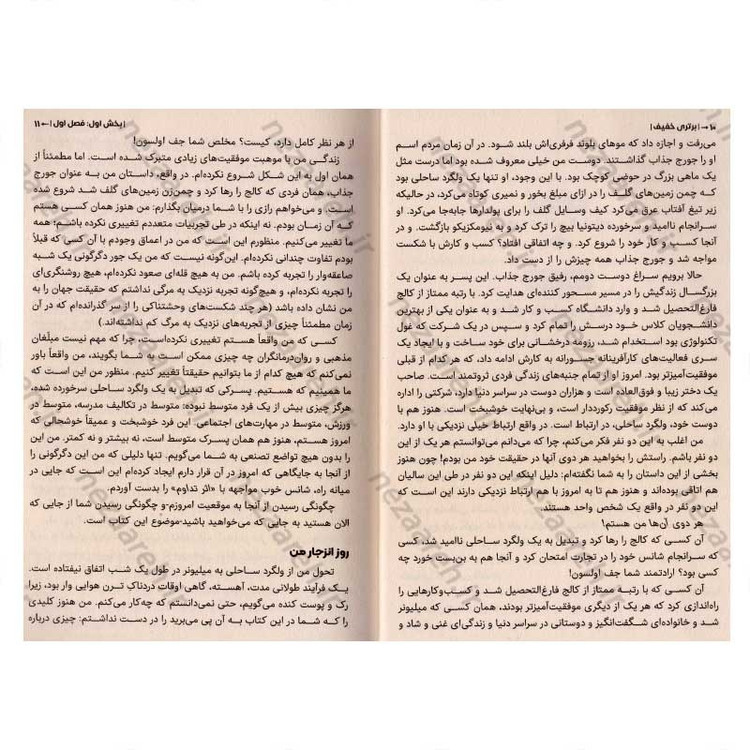 ۱۰ → | برتری خفیف |
می‌رفت و اجازه داد که موهای بلوند فرفری‌اش بلند شود. در آن زمان مردم اسم
او را جورج جذاب گذاشتند. دوست من خیلی معروف شده بود اما درست مثل
یک ماهی بزرگ در حوضی کوچک بود. با این وجود، او تنها یک ولگرد ساحلی بود
که چمن زمین‌های گلف را در ازای مبلغ بخور و نمیری کوتاه می‌کرد، در حالیکه
زیر تیغ آفتاب عرق می‌کرد کیف وسایل گلف را برای پولدارها جابه‌جا می‌کرد. او
سرانجام ناامید و سرخورده دیتونیا بیچ را ترک کرد و به نیومکزیکو بازگشت. و در
آنجا کسب و کار خود را شروع کرد. و چه اتفاقی افتاد؟ کسب و کارش با شکست
مواجه شد و جورج جذاب همه چیزش را از دست داد.
حالا برویم سراغ دوست دومم، رفیق جورج جذاب. این پسر به عنوان یک
بزرگسال زندگیش را در مسیر مسحور کننده‌ای هدایت کرد. با رتبه ممتاز از کالج
فارغ‌التحصیل شد و وارد دانشگاه کسب و کار شد و به عنوان یکی از بهترین
دانشجویان کلاس خود درسش را تمام کرد و سپس در یک شرکت که غول
تکنولوژی بود استخدام شد، رزومه درخشانی برای خود ساخت و با ایجاد یک
سری فعالیت‌های کارآفرینانه جسورانه به کارش ادامه داد، که هر کدام از قبلی
موفقیت‌آمیزتر بود. امروز او از تمام جنبه‌های زندگی فردی ثروتمند است. صاحب
یک دختر زیبا و فوق‌العاده است و هزاران دوست در سراسر دنیا دارد، شرکتی را اداره
می‌کند که از نظر موفقیت رکورددار است، و بی‌نهایت خوشبخت است. هنوز هم با
دوست خود، ولگرد ساحلی، در ارتباط است. در واقع ارتباط خیلی نزدیکی با او دارد.
من اغلب به این دو نفر فکر می‌کنم، چرا که می‌دانم می‌توانستم هر یک از این
دو نفر باشم. راستش را بخواهید هر دوی آنها در حقیقت خود من بودم! چون هنوز
بخشی از این داستان را به شما نگفته‌ام: دلیل اینکه این دو نفر در طی این سالیان
هم اتاقی بوده‌اند و هنوز هم تا به امروز با هم ارتباط نزدیکی دارند این است که
این دو نفر در واقع یک شخص واحد هستند.
هر دوی آن‌ها من هستم!
آن کسی که کالج را رها کرد و تبدیل به یک ولگرد ساحلی ناامید شد، کسی
که سرانجام شانس خود را در تجارت امتحان کرد و آنجا هم به بن‌بست خورد چه
کسی بود؟ ارادتمند شما جف اولسون!
آن کسی که با رتبه ممتاز از کالج فارغ‌التحصیل شد و کسب‌وکارهایی را
راه‌اندازی کرد که هر یک از دیگری موفقیت‌آمیزتر بودند، همان کسی که میلیونر
شد و خانواده‌ای شگفت‌انگیز و دوستانی در سراسر دنیا و زندگی‌ای غنی و شاد و
| بخش اول: فصل اول | ← ۱۱
از هر نظر کامل دارد، کیست؟ مخلص شما جف اولسون!
زندگی من با موهبت موفقیت‌های زیادی متبرک شده است. اما مطمئناً از
همان اول به این شکل شروع نکرده‌ام. در واقع، داستان من به عنوان جورج
جذاب، همان فردی که کالج را رها کرد و چمن‌زن زمین‌های گلف شد شروع شده
است. و می‌خواهم رازی را با شما درمیان بگذارم: من هنوز همان کسی هستم
که آن زمان بودم. نه اینکه در طی تجربیات متعددم تغییری نکرده باشم؛ همه
ما تغییر می‌کنیم. منظورم این است که من در اعماق وجودم با آن کسی که قبلاً
بودم تفاوت چندانی نکرده‌ام. این‌گونه نیست که من یک جور دگرگونی یک شبه
صاعقه‌وار را تجربه کرده باشم. من به هیچ قله‌ای صعود نکرده‌ام، هیچ روشنگری‌ای
را تجربه نکرده‌ام، و هیچ‌گونه تجربه نزدیک به مرگی نداشتم که حقیقت جهان را به
من نشان داده باشد (هر چند شکست‌های وحشتناکی را از سر گذرانده‌ام که در آن
زمان مطمئناً چیزی از تجربه‌های نزدیک به مرگ کم نداشته‌اند.)
کسی که من واقعاً هستم تغییری نکرده‌است، چرا که مهم نیست مبلّغان
مذهبی و روان‌درمانگران چه چیزی ممکن است به شما بگویند، من واقعاً باور
نمی‌کنم که هیچ کدام از ما بتوانیم حقیقتاً تغییر کنیم. منظور من این است که
ما همینیم که هستیم. پسرکی که تبدیل به یک ولگرد ساحلی سرخورده شده،
هرگز چیزی بیش از یک فرد متوسط نبوده: متوسط در تکالیف مدرسه، متوسط در
ورزش، متوسط در مهارت‌های اجتماعی. این فرد خوشبخت و عمیقاً خوشحالی که
امروز هستم، هنوز هم همان پسرک متوسط است، نه بیشتر و نه کمتر. من این
را بدون هیچ تواضع تصنعی به شما می‌گویم. تنها دلیلی که من این دگرگونی را
از آنجا به جایگاهی که امروز در آن قرار دارم ایجاد کرده‌ام این است که جایی در
میانه راه، شانس خوب مواجهه با «اثر تداوم» را بدست آوردم.
چگونگی رسیدن از آنجا به موقعیت امروزم-و چگونگی رسیدن شما از جایی که
الان هستید به جایی که می‌خواهید باشید-موضوع این کتاب است.
روز انزجار من
تحول من از ولگرد ساحلی به میلیونر در طول یک شب اتفاق نیفتاده است.
یک فرآیند طولانی مدت، آهسته، گاهی‌اوقات دردناکِ ترن هوایی وار بود، زیرا
رک و پوست کنده می‌گویم، حتی نمی‌دانستم که چه‌کار می‌کنم. من هنوز کلیدی
را که شما در این کتاب به آن پی می‌برید را در دست نداشتم: چیزی درباره